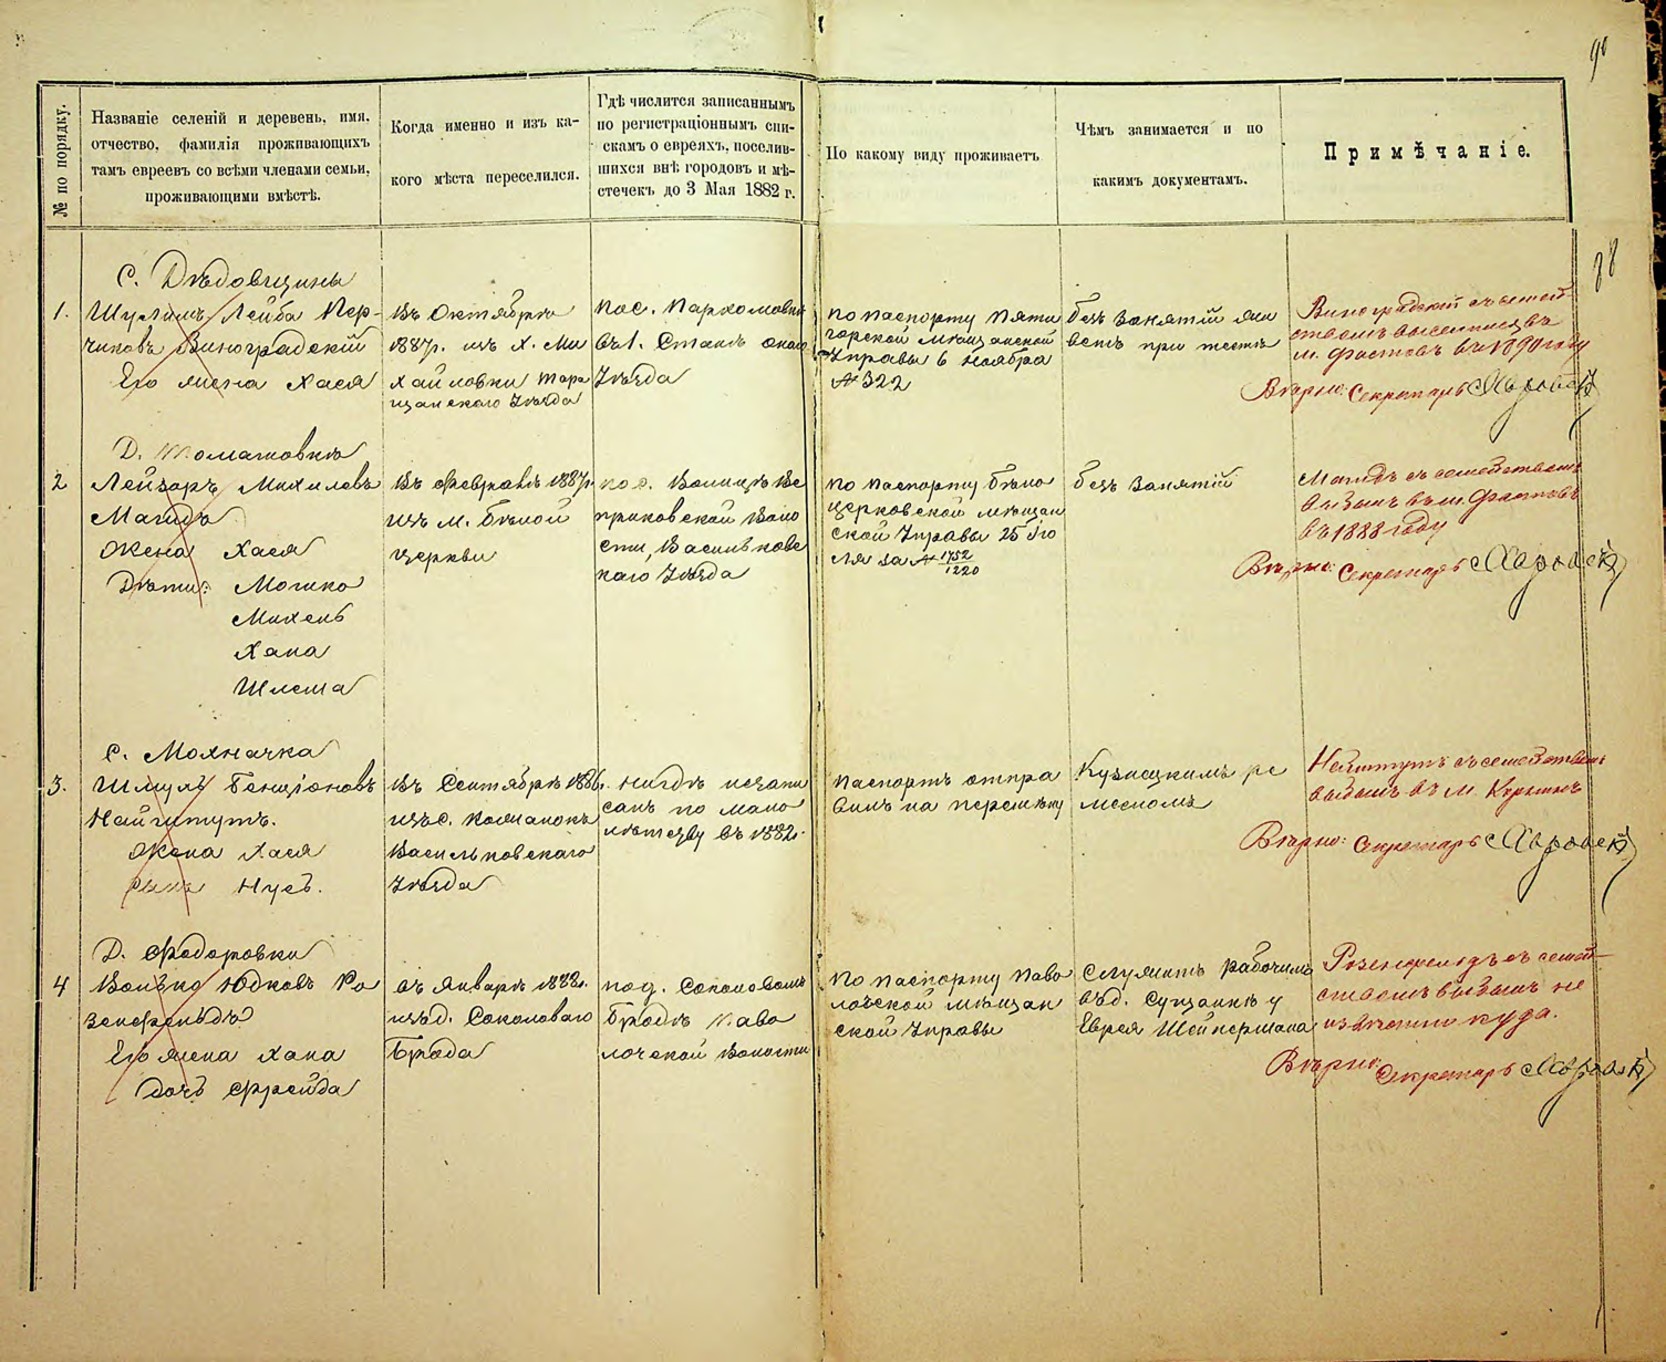 90
88
№ по порядку.
Названіе селеній и деревень, имя,
отчество, фамилія проживающихъ
тамъ евреевъ со всѣми членами семьи,
проживающими вмѣстѣ.
Когда именно и изъ ка-
кого мѣста переселился.
Гдѣ числится записаннымъ
по регистраціоннымъ спи-
скамъ о евреяхъ, поселив-
шихся внѣ городовъ и мѣ-
стечекъ до 3 Мая 1882 г.
По какому виду проживаетъ
Чѣмъ занимается и по
какимъ документамъ.
Примѣчаніе.
С. Дѣдовщины
1. Шулимъ Лейба Пер-
чиковъ Виноградскій
Его жена Хася
Въ Октябрѣ
1887г. изъ Х. Ми
хайловки Тара
щанского Уѣзда
по с. Пархомовки
въ 1. Станѣ онаго
Уѣзда
По паспорту Пяти
горской мѣщанской
Управы 6 Ноября
№ 322
безъ занятій жи
ветъ при тестѣ
Виноградскій съ семей-
ствомъ выселился въ
м. Фастовъ въ 1890 году
Вѣрно: Секретарь
Д. Томашовкѣ
2 Лейзаръ Михилевъ
Магидъ
Жена Хася
Дѣти: Мошко
Михель
Хана
Шлема
Въ Февралѣ 1887г.
изъ м. Бѣлой
Церкви
по с. Волицѣ Ве
приковской Воло
сти, Васильковс
каго Уѣзда
По паспорту Бѣло
церковской мѣщан
ской Управы 25 Ію
ля за № 1752/1220
безъ занятій
Магидъ съ семействомъ
выбылъ въ м. Фастовъ
въ 1888 году
Вѣрно: Секретарь
С. Молначка
3. Шмуль Бенціоновъ
Найштутъ.
Жена Хася
сынъ Нусь.
Въ Сентябрѣ 1886г.
изъ с.
Васильковскаго
Уѣзда
нигдѣ незапи
санъ по мало
лѣтству въ 1882г.
Паспортъ отпра
вилъ на перемѣну
Кузнецкимъ ре
месломъ
Нейштутъ съ семействомъ
выбылъ въ м.
Вѣрно: Секретарь
Д. Федоровки
4 Волько Юдковъ Ро
зенфельдъ
Его жена Хана
дочь Фрейда
въ Январѣ 1882г.
изъ д. Соколоваго
Брода
по д. Соколовомъ
Бродѣ Паво
лочской Волости
По паспорту Паво
лочской мѣщан
ской Управы
Служитъ рабочимъ
въ д. Сущанкѣ у
Еврея Шейнермана
Розенфельдъ съ семей-
ствомъ выбылъ не
извѣстно куда.
Вѣрно: Секретарь